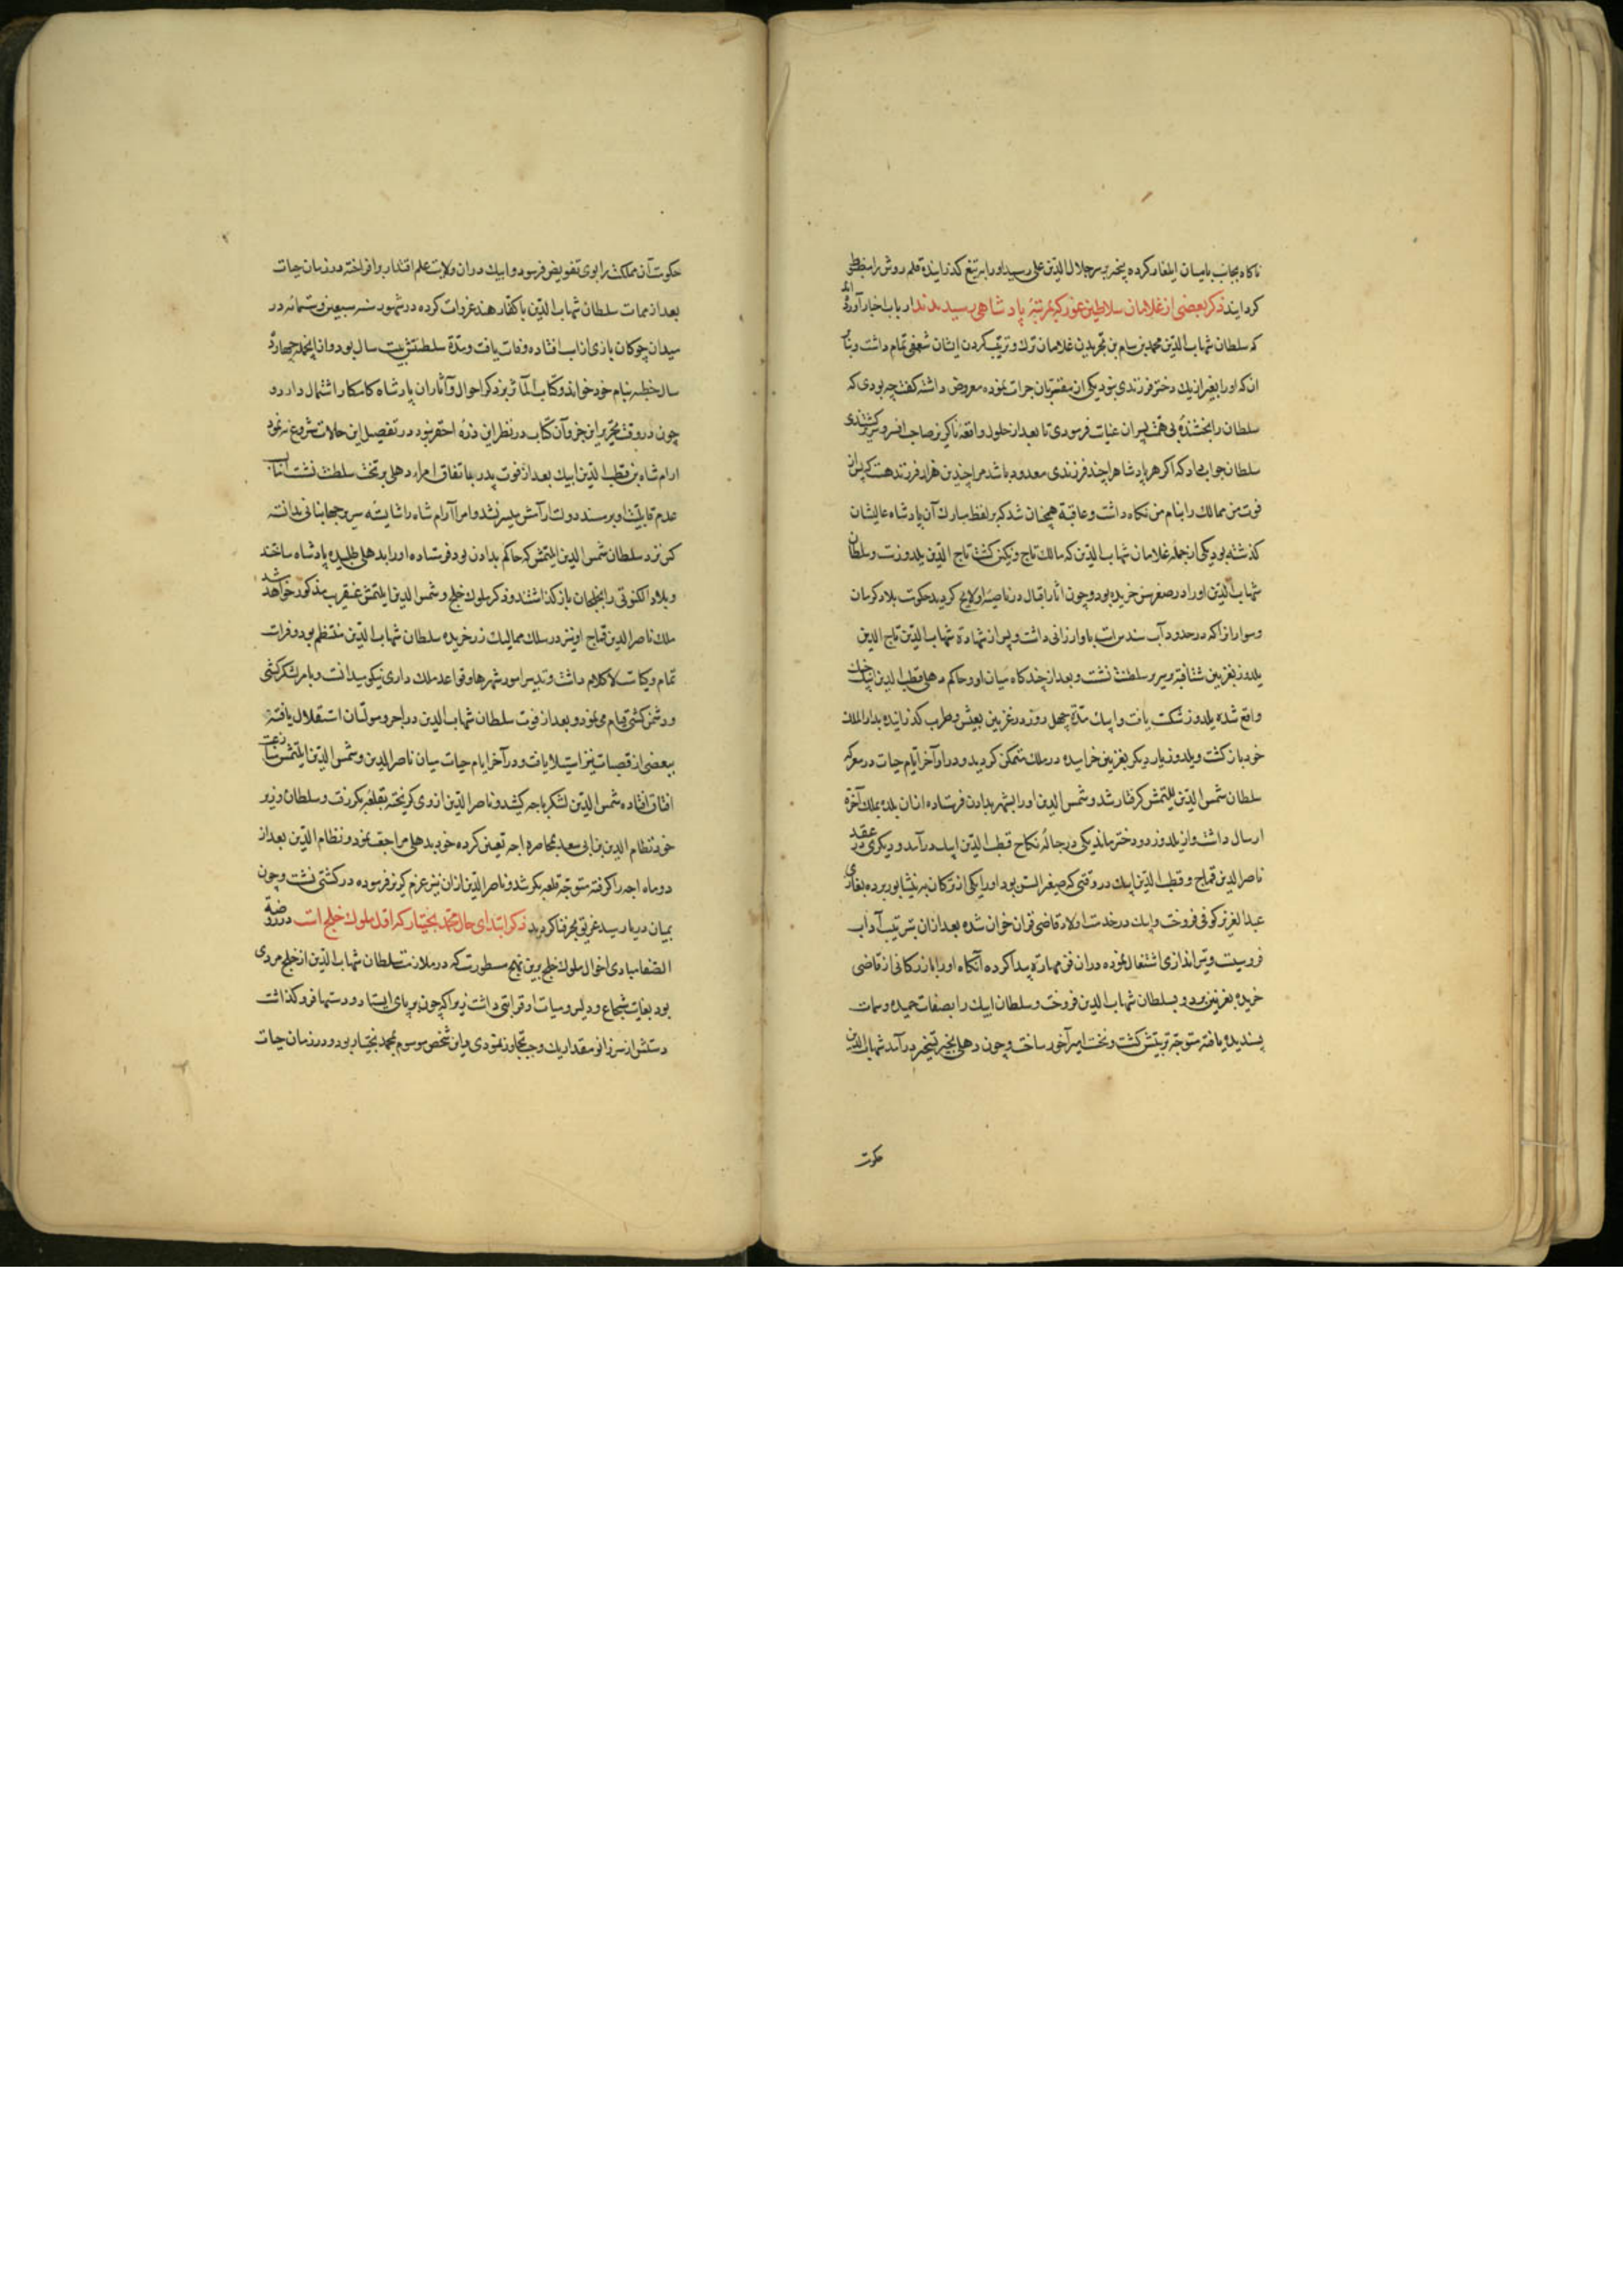 ناکاه بجانب بامیان ایلغار کرده بیخبر بر سر جلال الدین علی رسید و او را بر تیغ کذرانیده قلم روش را مضبوط
کردانید ذکر بعضی از غلامان سلاطین غور که بمرتبۀ پادشاهی رسیدند ارباب اخبار آورده اند
که سلطان شهاب الدین محمد بن سام بن بخریدن غلامان ترک و تربیت کردن ایشان شعفی تمام داشت و بنابر
انکه او را بغیر از یک دختر فرزندی نبود یکی از مقربان جرات نموده معروض داشته کفت چه بودی که
سلطان را بخشندۀ بی همت پسران عنایت فرمودی تا بعد از حلول واقعه ناکریز صاحب افسر و سریر کشتندی
سلطان جواب داد که اکر هر پادشاهرا چند فرزندی معدود باشد مرا چندین هزار فرزند هست که پس از
فوت من ممالک را بنام من نکاه داشت و عاقبة همچنان شد که بر لفظ مبارک آن پادشاه عالیشان
کذشته بود یکی از جمله غلامان شهاب الدین که مالک تاج و نکین کشت تاج الدین یلدوزست و سلطان
شهاب الدین او را در صغر سن خریده بود و چون آثار اقبال در ناصیۀ او لایح کردید حکومت بلاد کرمان
و سواران را که در حدود آب سند است باو ارزانی داشت و پس از شهادة شهاب الدین تاج الدین
یلدوز بغزنین شتافته و بر سریر سلطنت نشست و بعد از چند کاه میان او و حاکم دهلی قطب الدین ایبک جنک
واقع شده یلدوز شکست یافت و ایبک مدة چهل روز در غزنین بعیش و طرب کذرانیده بدار الملک
خود باز کشت و یلدوز بار دیکر بغزنین خرامیده در ملک متمکن کردید و در اواخر ایام حیات در معرکه
سلطان شمس الدین یلتمش کرفتار شد و شمس الدین او را بشهر بداون فرستاده از ان بلده بملک آخرة
ارسال داشت و از یلدوز دو دختر ماند یکی در حباله نکاح قطب الدین ایبک درآمد و دیکری در عقد
ناصر الدین قباج و قطب الدین ایبک در وقتی که صغیر السن بود او را یکی از ترکان به نیشابور برده بقاضی
عبد العزیز کوفی فروخت و ایبک در خدمت اولاد قاضی قرآن خوان شده بعد از ان بترتیب آداب
فروسیت و تیراندازی اشتغال نموده در ان فن مهارة پیدا کرده آنکاه او را بازرکانی از قاضی
خریده بغزنین برد و بسلطان شهاب الدین فروخت و سلطان ایبک را بصفات حمیده و سمات
پسندیده یافته متوجه تربیتش کشت و نخست امیر آخور ساخت و چون دهلی بحیز تسخیر درآمد شهاب الدین
حکومت
حکومت آن مملکت را بوی تفویض فرمود و ایبک در ان ولایت علم اقتدار برافراخته در زمان حیات
بعد از ممات سلطان شهاب الدین با کفار هند غزوات کرده در شهور سنه سبعین و ستمائه در
میدان چوکان بازی از اسب افتاده وفات یافت و مدة سلطنتش بیست سال بود و از انجمله چهارده
سال خطبه بنام خود خواند و کتاب المآثر بر ذکر احوال و آثار ان پادشاه کامکار اشتمال دارد و
چون در وقت تحریر این جزو آن کتاب در نظر این ذرۀ احقر نبود در تفصیل این حالات شروع ننمود
ارام شاه بن قطب الدین ایبک بعد از فوت پدر باتفاق امراء دهلی بر تخت سلطنت نشست اما بنابر
عدم قابلیت او بر مسند دولت ارامش میسر نشد و امرا آرام شاه را شایسته سریر جهانبانی ندانسته
کس نزد سلطان شمس الدین ایلتمش که حاکم بداون بود فرستاده او را بدهلی طلبیده پادشاه ساختند
و بلاد الکنوتی را بخلجیان باز کذاشتند و ذکر ملوک خلج و شمس الدین ایلتمش عنقریب مذکور خواهد شد
ملک ناصر الدین قباج او نیز در سلک ممالیک زر خریده سلطان شهاب الدین منتظم بود و فراست
تمام و کیاست لا کلام داشت و تدبیر امور شهرها و قواعد ملک داری نیکو میدانست و بامر لشکرکشی
و دشمن کشی قیام می نمود و بعد از فوت سلطان شهاب الدین در اجر و مولتان استقلال یافته
ببعضی از قصبات نیز استیلا یافت و در آخر ایام حیات میان ناصر الدین و شمس الدین ایلتمش منازعت
اتفاق افتاده شمس الدین لشکر باجه کشید و ناصر الدین از وی کریخته بقلعه بکر رفت و سلطان وزیر
خود نظام الدین بن ابی سعید بمحاصره اجه تعیین کرده خود بدهلی مراجعت نمود و نظام الدین بعد از
دو ماه اجه را کرفته متوجه قلعه بکر شد و ناصر الدین از ان نیز عزم کریز فرموده در کشتی نشست و چون
بمیان دریا رسید غریق بحر فنا کردید ذکر ابتدای حال محمد بختیار که اول ملوک خلج است در روضة
الصفا مبادی احوال ملوک خلج برین نهج مسطورست که در ملازمت سلطان شهاب الدین از خلج مردی
بود بغایت شجاع و دلیر و میانت او قرابتی داشت زیرا که چون بر پای ایستادی و دستها فرو کذاشت
دستش از سر زانو مقدار یک وجب تجاوز نمودی و این شخص موسوم بمحمد بختیار بود و در زمان حیات